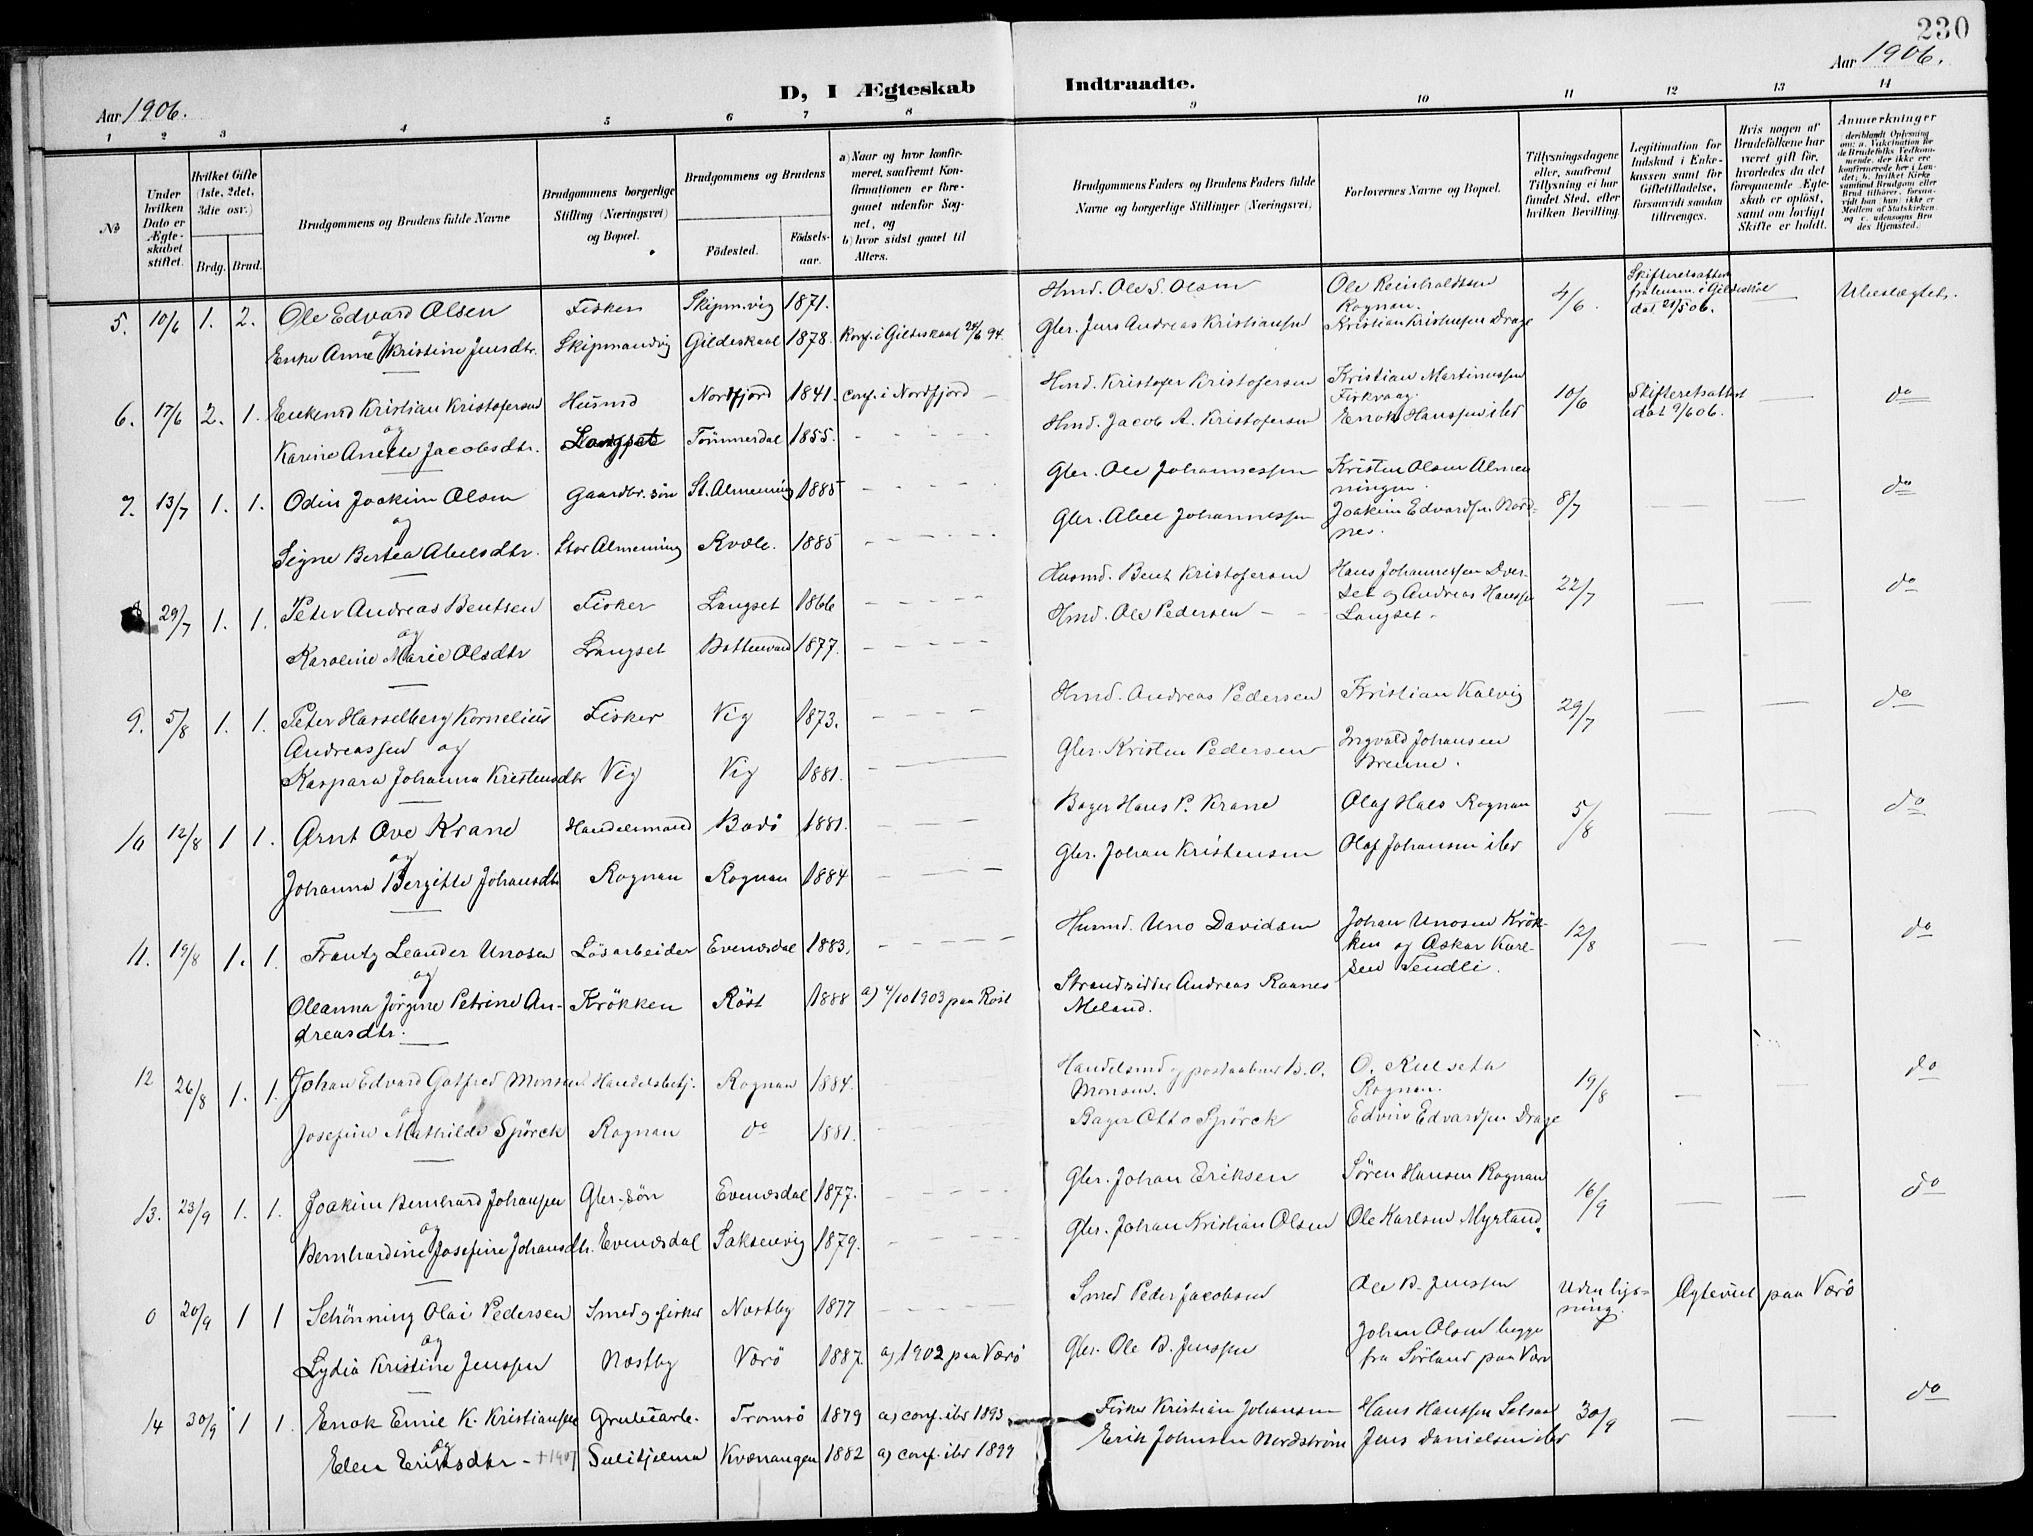 230
Aar 1906.
Aar 1906.
D, I Ægteskab Indtraadte.
1 2 3 4 5 6 7 8 9 10 11 12 13 14
№
Under hvilken Dato er Ægteskabet stiftet.
Hvilket Gifte (1ste, 2det, 3die osv.)
Brdg. Brud.
Brudgommens og Brudens fulde Navne
Brudgommens borgerlige Stilling (Næringsvei) og Bopæl.
Brudgommens og Brudens
Födested.
Födsels-aar.
a) Naar og hvor konfirmeret, saafremt Konfirmationen er foregaaet udenfor Sognet, og
b) hvor sidst gaaet til Alters.
Brudgommens Faders og Brudens Faders fulde Navne og borgerlige Stillinger (Næringsvei)
Forlovernes Navne og Bopæl.
Tillysningsdagene eller, saafremt Tillysning ei har fundet Sted, efter hvilken Bevilling.
Legitimation for Indskud i Enkekassen samt for Giftetilladelse, forsaavidt saadan tiltrænges.
Hvis nogen af Brudefolkene har været gift för, hvorledes da det foregaaende Ægteskab er oplöst, samt om lovligt Skifte er holdt.
Anmerkninger
5. 10/6 1. 2. Ole Edvard Olsen Fisker Skipm.vig 1871. Hmd. Ole S. Olsen Ole Reinholdtsen Rognan. 4/6. Skifteretsattest fra lensm. i Gildeskaal dat 21/5 06. — Ubeslægtet.
og
Enke Anne Kristine Jensdtr. Skipmandvig Gildeskaal 1878. Konf. i Gildeskaal 24/6 94. Gbr. Jens Andreas Kristiansen Kristian Kristensen Drage
6. 17/6 2. 1. Enkemd Kristian Kristofersen Husmd Nordfjord 1841. Conf. i Nordfjord — Hmd. Kristofer Kristofersen Kristian Martinussen 10/6 Skifteretsattest dat 9/6 06. do
og
Karine Anette Jacobsdtr. Langset Tömmerdal 1855. Hmd. Jacob A. Kristofersen Enok Hanssen ibd
7. 13/7 1. 1. Odin Joakim Olsen Gaardbr. sön St. Almenning 1885 Gbr. Ole Johannessen Kristen Olsen Almenningen. 8/7 — — do
og
Signe Bertea Abelsdtr. Stor Almenning Kvæle. 1885 Gbr. Abel Johannessen Joakim Edvardsen Nordnes.
8 29/7 1. 1. Peter Andreas Bentsen Fisker Langset 1866 Husmd. Bent Kristofersen Hans Johannessen Dverset og Andreas Hanssen Langset. 22/7 — — do
og
Karoline Marie Olsdtr Langset Bottenvand 1877. Hmd. Ole Pedersen
9. 5/8 1. 1. Peter Hasselberg Kornelius Fisker Vig 1873. Hmd. Andreas Pedersen Kristian Kalvig 29/7 — — do
Andreassen og
Kaspara Johanna Kristensdtr Vig Vig 1881. Gbr. Kristen Pedersen Ingvald Johansen Brenne.
10 12/8 1 1. Arnt Ove Krane Handelsmand Bodö 1881. Bager Hans P. Krane Olaf Hals Rognan 5/8 — — do
og
Johanna Bergitte Johansdtr Rognan Rognan 1884 Gbr. Johan Kristensen Olaf Johansen ibd
11. 19/8 1. 1. Frantz Leander Unosen Lösarbeider Evensdal 1883. Husmd. Uno Davidsen Johan Unosen Krökken og Oskar Karlsen Tendli. 12/8 — — do
og
Oleanna Jörgine Petrine Andreasdtr. Krökken Röst 1888 a) 4/10 1903 paa Röst Strandsidder Andreas Raanes Meland.
12 26/8 1. 1. Johan Edvard Gotfred Monsen. Handelsbetj. Rognan 1884. Handelsmd og postaabner B. O. Monsen. O. Kulseth Rognan. 19/8 — — do
og
Josefine Mathilde Spörck Rognan do 1881. Bager Otto Spörck Edvin Edvardsen Drage
13. 23/9 1. 1. Joakim Bernhard Johansen Gbr. sön Evensdal 1877. Gbr. Johan Eriksen Sören Hansen Rognan 16/9 — — do
og
Bernhardine Josefine Johansdtr. Evensdal Saksenvig 1879. Gbr. Johan Kristian Olsen Ole Karlsen Myrland.
0 20/9 1 1 Schönning Olai Pedersen Smed og fisker Næstby 1877 Smed Peder Jacobsen Ole B. Jenssen Uden lysning. Ægteviet paa Værö
og
Lydia Kristine Jenssen Næstby Værö 1887. a) 1902 paa Værö Gbr. Ole B. Jenssen Johan Olsen begge fra Sörland paa Værö
14 30/9 1 1. Enok Emil K. Kristiansen Grubearb. Tromsö 1879 a) conf. ibd 1893. Fisker Kristian Johansen Hans Hanssen 30/9 — — do
og
Elen Eriksdtr - +1907 Sulitjelma Kvænangen 1882 a) conf. ibd 1899 Erik Johnsen Nordström Jens Danielsen ibd